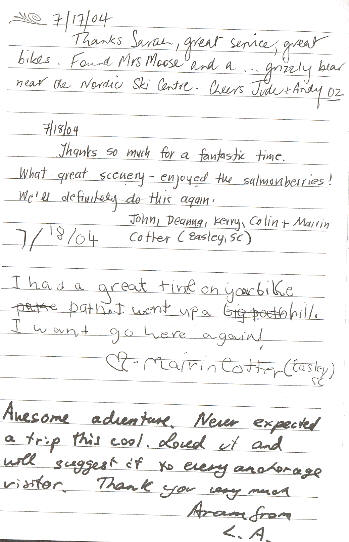 7/17/04
Thanks Sarah, great service, great
bikes. Found Mrs Moose and a ... grizzly bear
near the Nordic Ski Centre. Cheers Jude + Andy OZ
7/18/04
Thanks so much for a fantastic time.
What great scenery - enjoyed the salmonberries!
We'll definitely do this again.
John, Deanna, Kerry, Colin + Mairin
7/18/04 Cotter (Easley, SC)
I had a great time on your bike
path. I went up a big hill.
I want go here again!
♡ - Mairin Cotter (Easley)
SC
Awesome adventure. Never expected
a trip this cool. Loved it and
will suggest it to every anchorage
visitor. Thank you very much
Aram from
L.A.